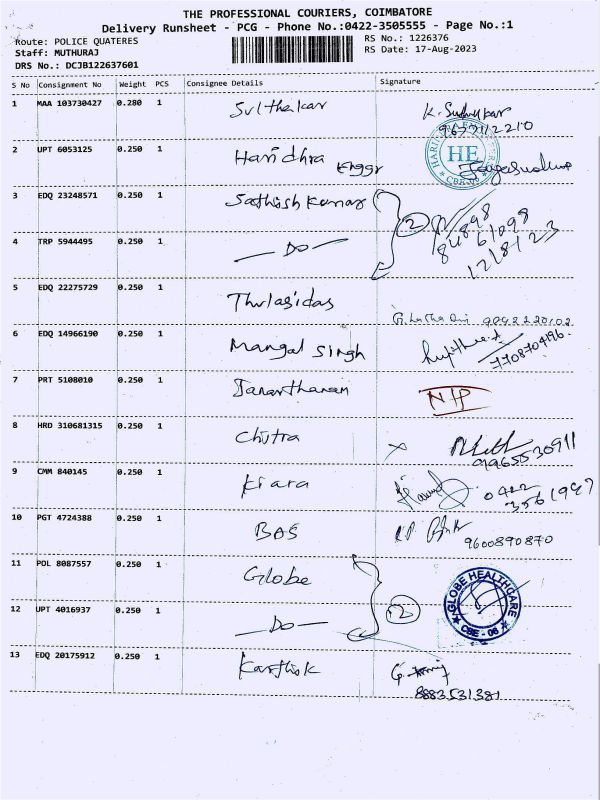 THE PROFESSIONAL COURIERS, COIMBATORE
Delivery Runsheet - PCG - Phone No.:0422-3505555 - Page No.:1
Route: POLICE QUATERES
RS No.: 1226376
Staff: MUTHURAJ
RS Date: 17-Aug-2023
DRS No.: DCJB122637601
S No Consignment No Weight PCS Consignee Details Signature
1 MAA 103730427 0.280 1
2 UPT 6053125 0.250 1 Haridhra Enggr
HE
3 EDQ 23248571 0.250 1 Sathish kumar 2
4 TRP 5944495 0.250 1 — Do — 12/8/23
5 EDQ 22275729 0.250 1 Thulasidas
9092220102
6 EDQ 14966190 0.250 1 Mangal Singh
7708704196
7 PRT 5108010 0.250 1 Janarthanan N/P
8 HRD 310681315 0.250 1 Chitra X
9965530911
9 CMM 840145 0.250 1 Kiara 0422
3561997
10 PGT 4724388 0.250 1 BAS
9600890870
11 POL 8087557 0.250 1 Globe
GLOBE HEALTHCARE
CBE - 06
12 UPT 4016937 0.250 1 — Do — 2
13 EDQ 20175912 0.250 1 Karthik
8883531381